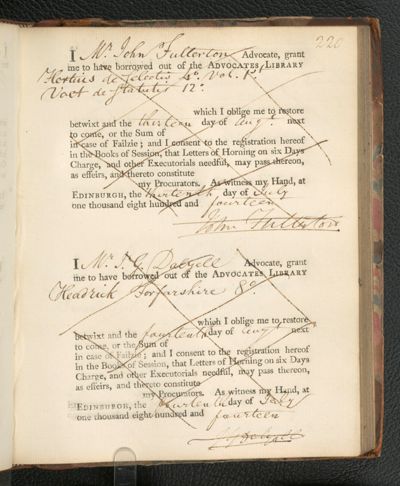 220
I Mr. John Fullerton Advocate, grant
me to have borrowed out of the ADVOCATES LIBRARY
Hertius de selectis 4o. Vol. 1st
Voet de statutis 12o
which I oblige me to restore
betwixt and the thirteen day of Augt. next
to come, or the Sum of
in case of Failzie; and I consent to the registration hereof
in the Books of Session, that Letters of Horning on six Days
Charge, and other Executorials needful, may pass thereon,
as effeirs, and thereto constitute
my Procurators. As witness my Hand, at
EDINBURGH, the thirteenth day of July
one thousand eight hundred and fourteen
John Fullerton.
I Mr. J. G. Dalyell Advocate, grant
me to have borrowed out of the ADVOCATES LIBRARY
Headrick Forfarshire 8o.
which I oblige me to restore
betwixt and the fourteenth day of Augt next
to come, or the Sum of
in case of Failzie; and I consent to the registration hereof
in the Books of Session, that Letters of Horning on six Days
Charge, and other Executorials needful, may pass thereon,
as effeirs, and thereto constitute
my Procurators. As witness my Hand, at
EDINBURGH, the fourteenth day of July
one thousand eight hundred and fourteen
J G Dalyell